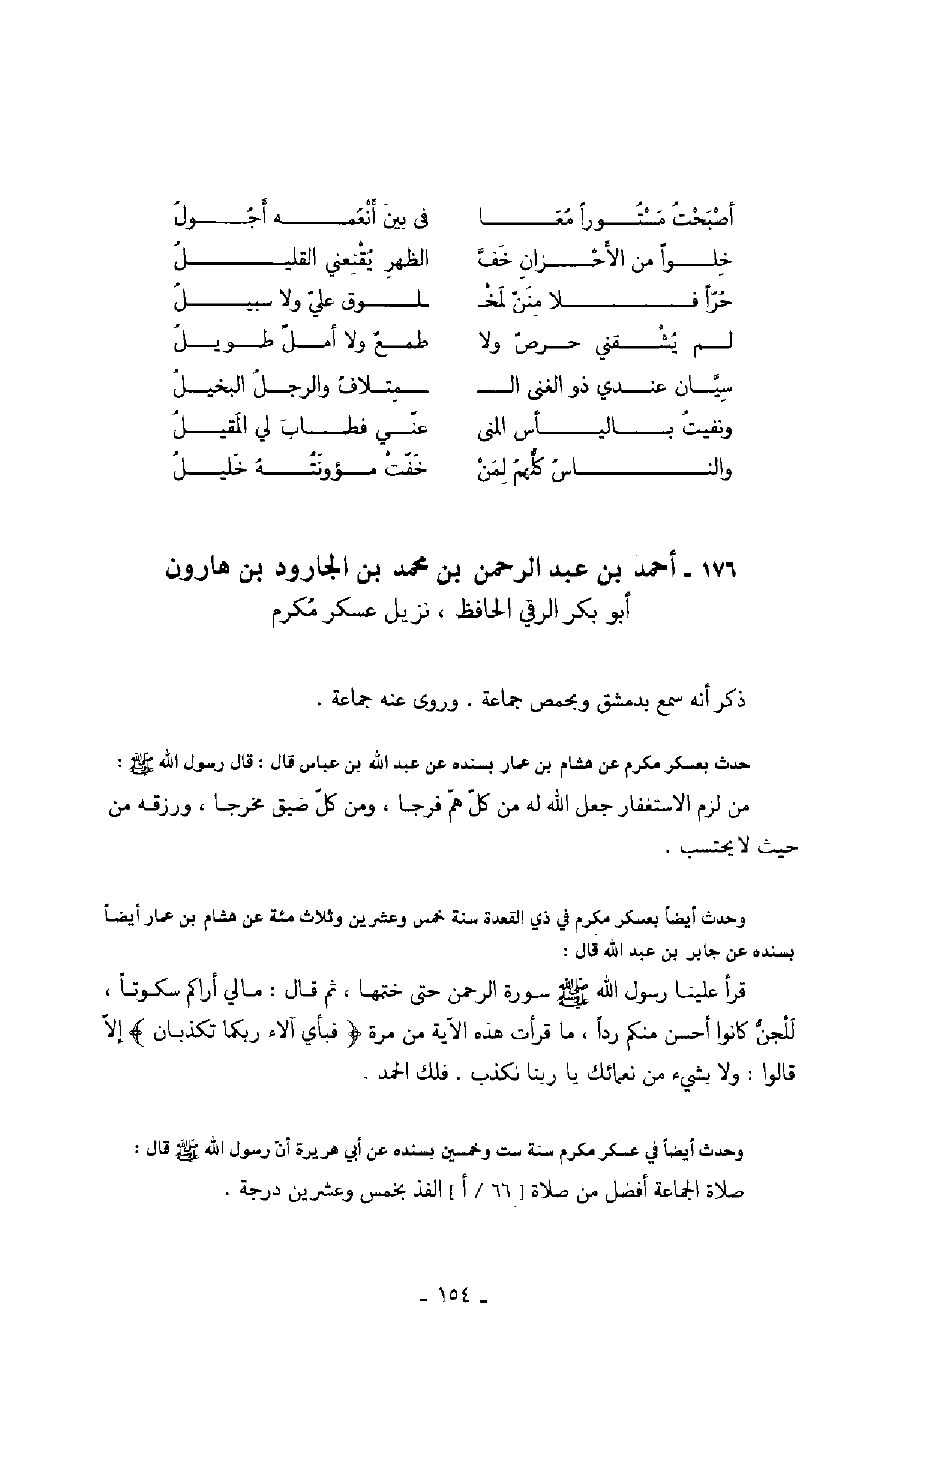 أصْبَحْتُ مَسْتُوراً مُعَا فى بينَ أنْعُمِهِ أجُولُ
خلواً من الأحْزانِ خَفَّ الظهرِ يُقْنِعني القليلُ
حُرّاً فلا مِنَنٌ لَمَخْـ ـلوقٍ عليّ ولا سبيلُ
لم يُشْقني حرصٌ ولا طمعٌ ولا أملٌ طويلُ
سيَّان عندي ذو الغنى الـ ـمتلافُ والرجلُ البخيلُ
ونفيتُ باليأس المنى عنّي فطابَ لي المَقيلُ
والناسُ كلُّهمُ لِمَنْ خَفَّتْ مؤونَتُهُ خَليلُ
١٧٦ - أحمد بن عبد الرحمن بن محمد بن الجارود بن هارون
أبو بكر الرقي الحافظ ، نزيل عسكر مُكرم
ذكر أنه سمع بدمشق وبحمص جماعة . وروى عنه جماعة .
حدث بعسكر مكرم عن هشام بن عمار بسنده عن عبد الله بن عباس قال : قال رسول الله ﷺ :
من لزم الاستغفار جعل الله له من كلّ همّ فرجا ، ومن كلّ ضيق مخرجا ، ورزقه من
حيث لا يحتسب .
وحدث أيضاً بعسكر مكرم في ذي القعدة سنة خمس وعشرين وثلاث مئة عن هشام بن عمار أيضاً
بسنده عن جابر بن عبد الله قال :
قرأ علينا رسول الله ﷺ سورة الرحمن حتى ختمها ، ثم قال : مالي أراكم سكوتاً ،
لَلْجنُّ كانوا أحسن منكم رداً ، ما قرأت هذه الآية من مرة ﴿ فبأي آلاء ربكما تكذبان ﴾ إلاّ
قالوا : ولا بشيء من نعمائك يا ربنا نكذب . فلك الحمد .
وحدث أيضاً في عسكر مكرم سنة ست وخمسين بسنده عن أبي هريرة أنّ رسول الله ﷺ قال :
صلاة الجماعة أفضل من صلاة [ ٦٦ / أ ] الفذ بخمس وعشرين درجة .
- ١٥٤ -